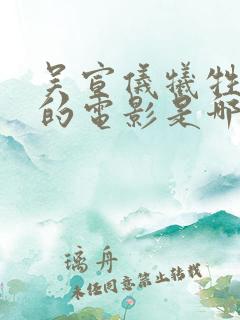 吴宣儀犧牲
的電影是哪
璃舟
未经同意禁止转载